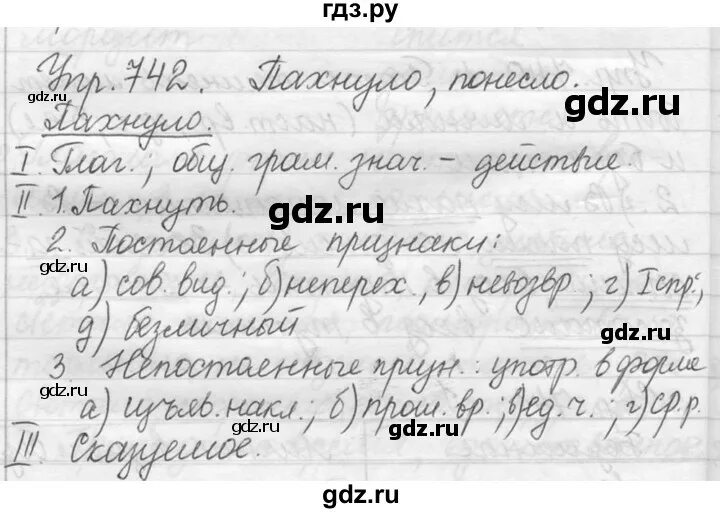 гдз.ру
Упр. 742. Пахнуло, понесло.
gdz.ru
gdz.ru
Пахнуло.
I. Глаг., общ. грам. знач. – действие.
II. 1. Пахнуть.
gdz.ru
2. Постоенные признаки:
gdz.ru
gdz.ru
а) сов. вид.; б) неперех., в) невозвр.; г) I спр.;
д) безличный
gdz.ru
gdz.ru
3 Непостоенные призн.: употр. в форме
а) изъяв. накл.; б) прош. вр.; в) ед. ч.; г) ср. р.
gdz.ru
gdz.ru
III Сказуемое.
gdz.ru